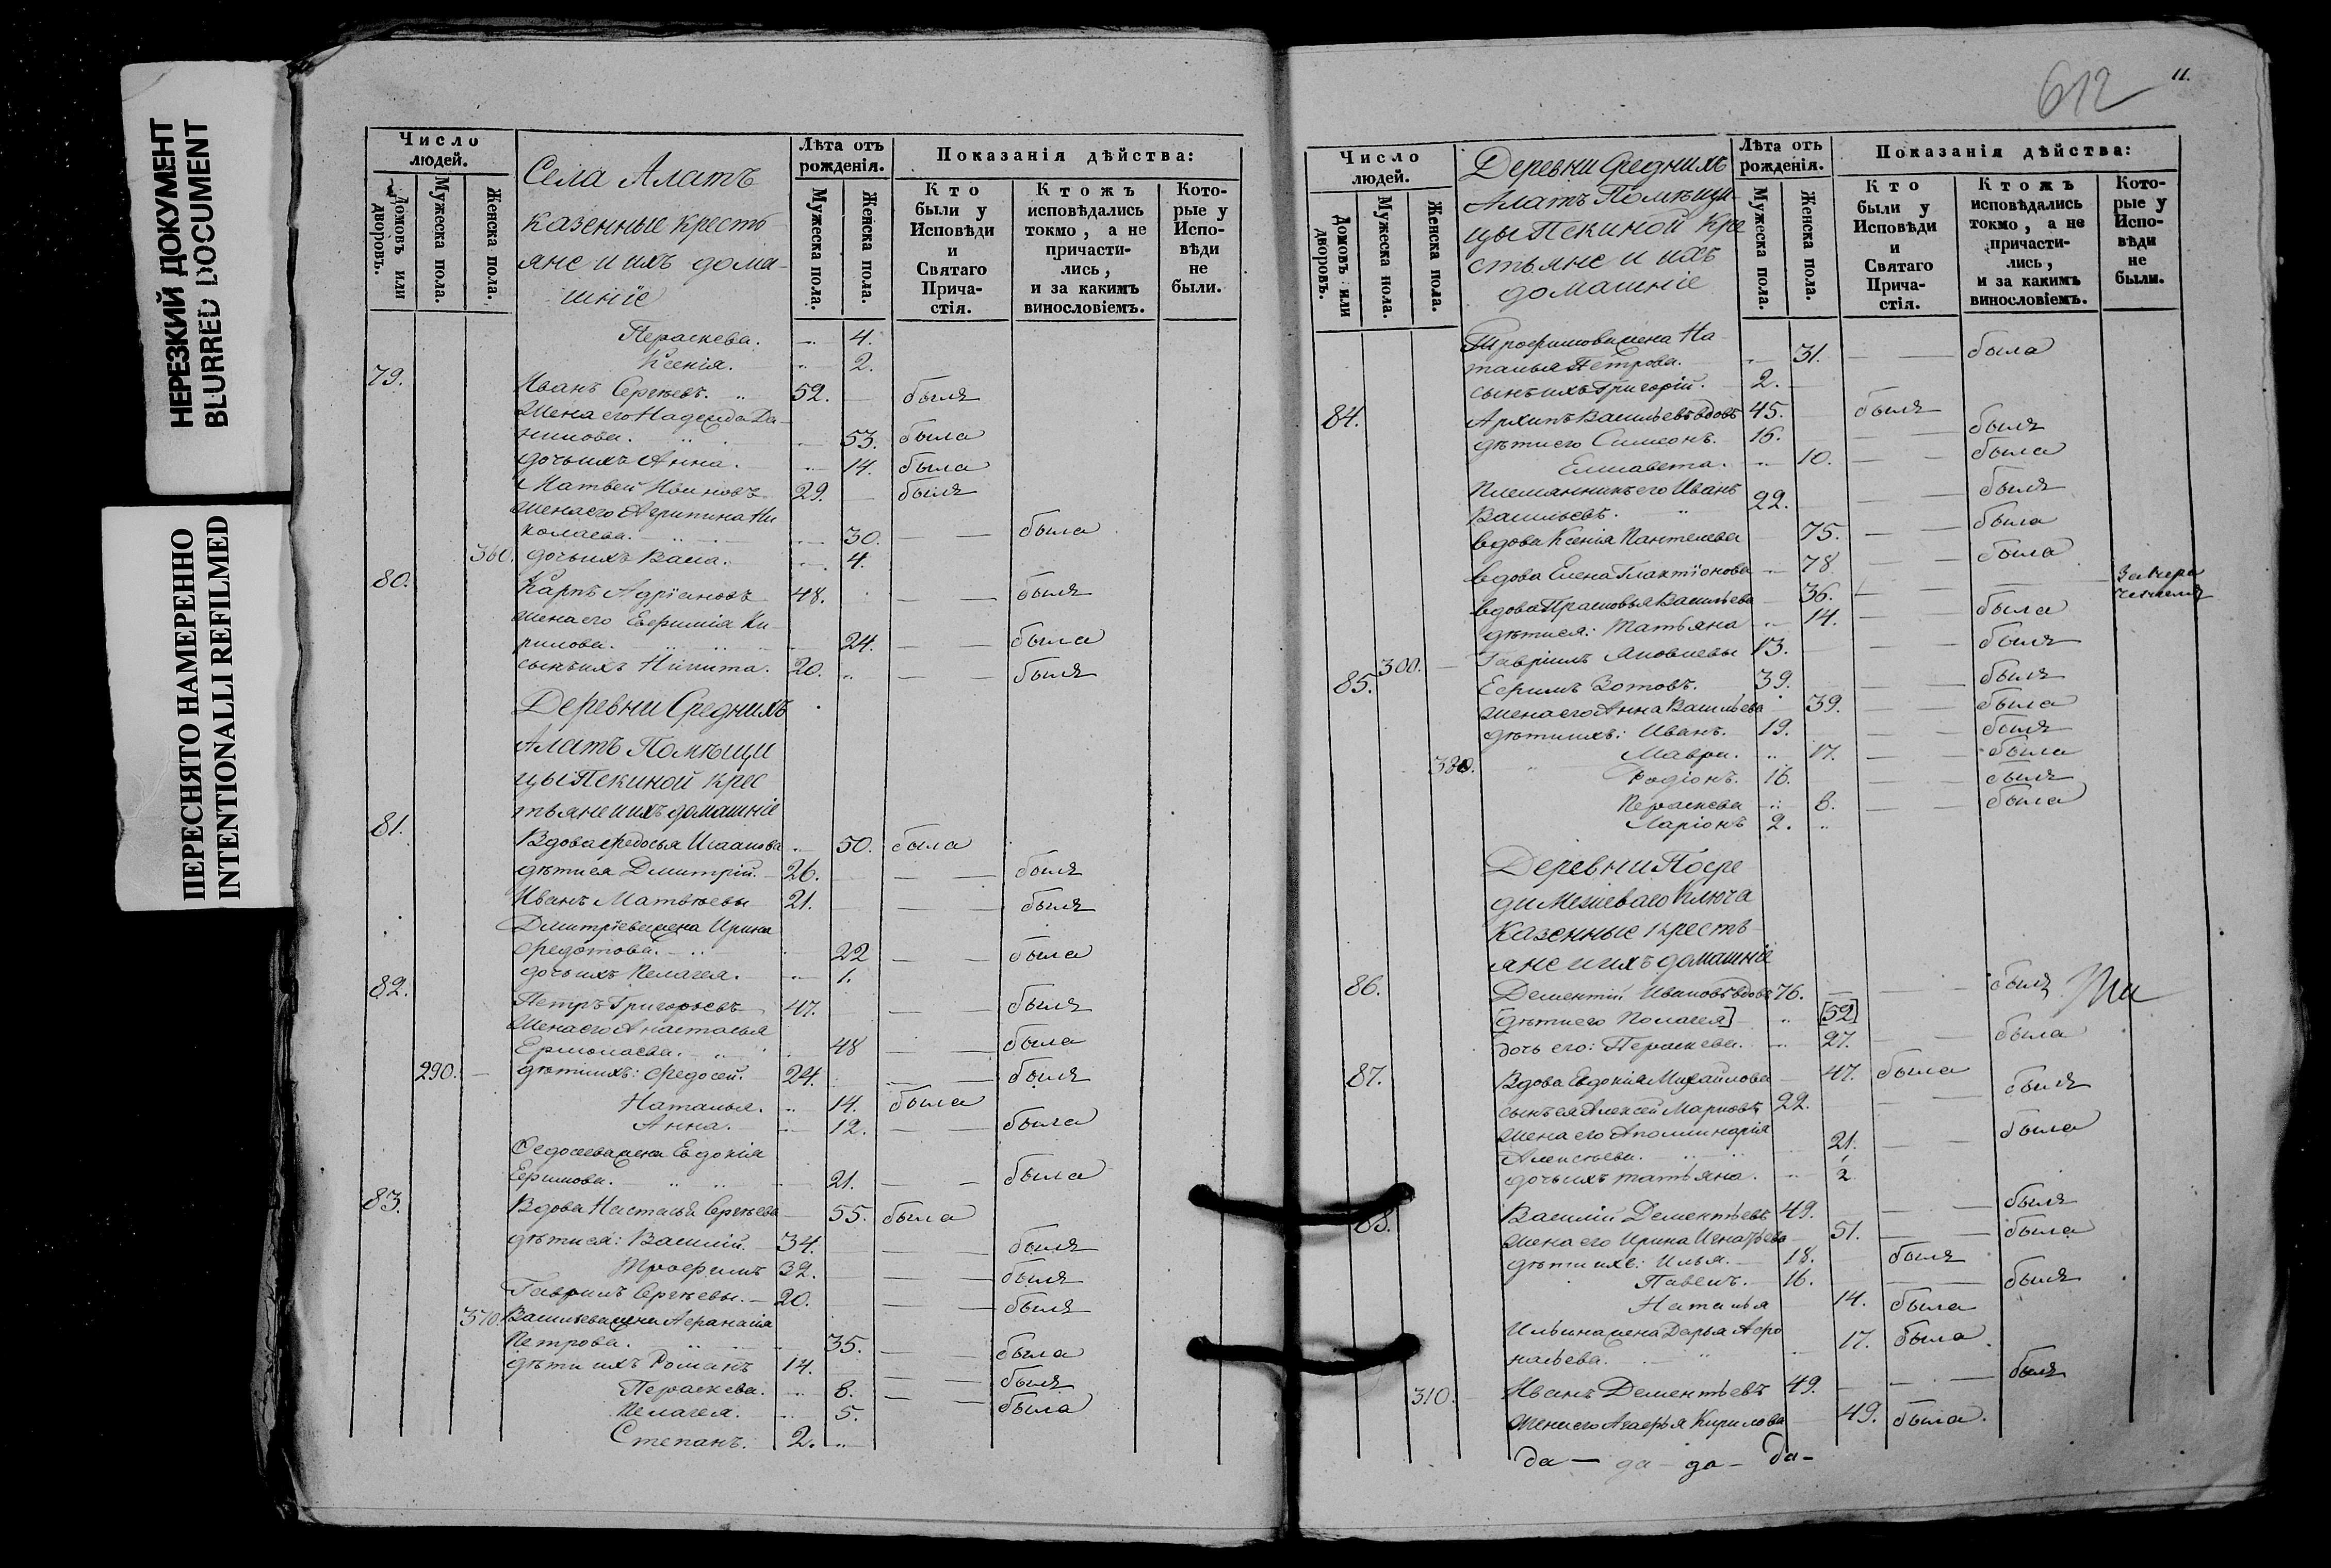 НЕРЕЗКИЙ ДОКУМЕНТ
BLURRED DOCUMENT
ПЕРЕСНЯТО НАМЕРЕННО
INTENTIONALLI REFILMED
Число людей.
Домовъ или дворовъ.
Мужеска пола.
Женска пола.
Села Алатъ
казенные кресть
яне и ихъ дома-
шніе
Лѣта отъ рожденія.
Мужеска пола.
Женска пола.
Показанія дѣйства:
Кто были у Исповѣди и Святаго Прича-стія.
Ктожъ исповѣдались токмо, а не причасти-лись, и за какимъ винословіемъ.
Кото-рые у Испо-вѣди не были.
Параскева. 4.
Ксенія. 2.
79. Иванъ Сергѣевъ. 52. былъ
Жена его Надежда Да-
нилова. 53. была
дочь ихъ Анна. 14. была
Матвей Ивановъ 29. былъ
Жена его Агрипина Ни
колаева. 30. была
360. дочь ихъ Васа. 4.
80. Карпъ Адріановъ 48. былъ
Жена его Евфимія Ки-
рилова. 24. была
сынъ ихъ Никита. 20. былъ
Деревни Среднихъ
Алатъ Помѣщи
цы Пекиной крес
тьяне и ихъ домашніе
81. Вдова Федосья Исаакова 50. была
дѣти ея Дмитрій. 26. былъ
Иванъ Матвѣевы 21. былъ
Дмитріева жена Ирина
Федотова. 22 была
дочь ихъ Пелагея. 1.
82. Петръ Григорьевъ 47. былъ
Жена его Анастасья
Ермолаева. 48 была
290. дѣти ихъ: Федосей. 24. былъ
Наталья. 14. была
Анна. 12. была
Федосеева жена Евдокія
Ефимова. 21. была
83. Вдова Настасья Сергѣева 55. была
дѣти ея: Василій. 34. былъ
Трофимъ 32. былъ
Гаврилъ Сергѣевы. 20. былъ
370. Васильева жена Афанасія
Петрова. 35. была
дѣти ихъ Романъ 14. былъ
Параскева. 8. была
Пелагея. 5.
Степанъ. 2.
612
11.
Число людей.
Домовъ или дворовъ.
Мужеска пола.
Женска пола.
Деревни Среднихъ
Алатъ Помѣщи-
цы Пекиной Кре
стьяне и ихъ
домашніе
Лѣта отъ рожденія.
Мужеска пола.
Женска пола.
Показанія дѣйства:
Кто были у Исповѣди и Святаго Прича-стія.
Ктожъ исповѣдались токмо, а не причасти-лись, и за какимъ винословіемъ.
Кото-рые у Испо-вѣди не были.
Трофимова жена На
талья Петрова. 31. была
сынъ ихъ Григорій. 2.
84. Архипъ Васильевъ вдовъ 45. былъ
дѣти его Симеонъ. 16. былъ
Елисавета. 10. была
Племянникъ его Иванъ
Васильевъ. 22. былъ
вдова Ксенія Пантелеева 75. была
вдова Елена Галактіонова 78 была
вдова Прасковья Васильева 36.
дѣти ея: Татьяна 14. была
300. Гавріилъ Яковлевы 13. былъ
85. Ефимъ Зотовъ. 39. былъ
Жена его Анна Васильева 39. была
дѣти ихъ: Иванъ. 19. былъ
380. Мавра. 17. была
Родіонъ. 16. былъ
Параскева 8. была
Ларіонъ 2.
Деревни Посре
ди
Ключа
Казенные кресть
яне и ихъ домашніе
86. Дементій Ивановъ вдовъ 76. былъ
[дѣти его Пелагея] [52]
дочь его: Параскева. 27. была
87. Вдова Евдокія Михайлова 47. была
сынъ ея Алексей Марковъ 22. былъ
Жена его Аполлинарія
Алексѣева. 21. была
дочь ихъ Татьяна. 2
88. Василій Дементьевъ 49. былъ
Жена его Ирина Игнатьева 51. была
дѣти ихъ: Илья. 18. былъ
Павелъ. 16. былъ
Наталья 14. была
Ильина жена Дарья Афо
насьева. 17. была
310. Иванъ Дементьевъ 49. былъ
Жена его Агафья Кирилова 49. была.
да — да — да — да —